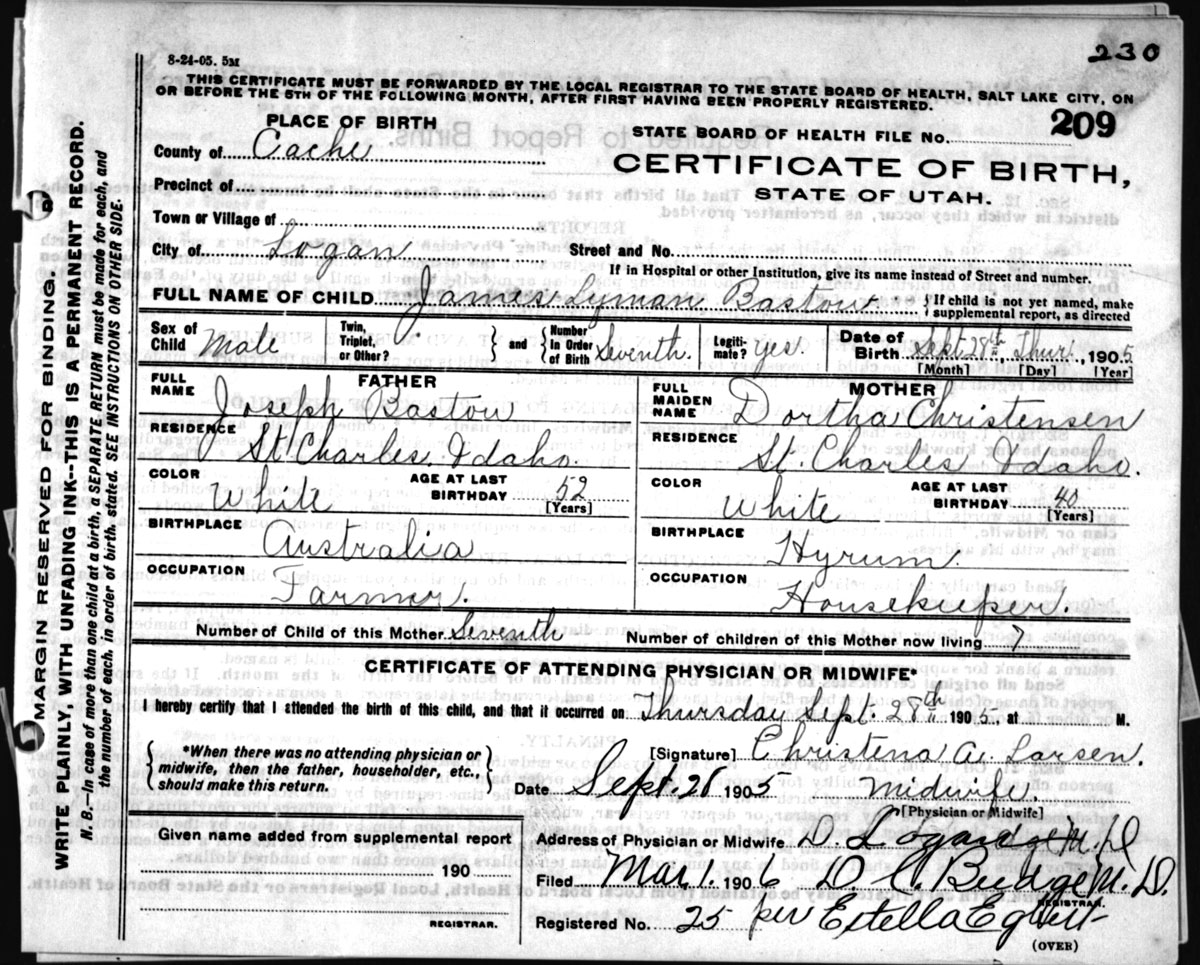 230
8-24-05. 5M
THIS CERTIFICATE MUST BE FORWARDED BY THE LOCAL REGISTRAR TO THE STATE BOARD OF HEALTH, SALT LAKE CITY, ON
OR BEFORE THE 5TH OF THE FOLLOWING MONTH, AFTER FIRST HAVING BEEN PROPERLY REGISTERED.
MARGIN RESERVED FOR BINDING.
WRITE PLAINLY, WITH UNFADING INK--THIS IS A PERMANENT RECORD.
N. B.—In case of more than one child at a birth, a SEPARATE RETURN must be made for each, and
the number of each, in order of birth, stated. SEE INSTRUCTIONS ON OTHER SIDE.
PLACE OF BIRTH
County of Cache
Precinct of
Town or Village of
City of Logan
STATE BOARD OF HEALTH FILE No. 209
CERTIFICATE OF BIRTH,
STATE OF UTAH.
Street and No.
If in Hospital or other Institution, give its name instead of Street and number.
FULL NAME OF CHILD James Lyman Bastow { If child is not yet named, make
supplemental report, as directed
Sex of Child Male
Twin, Triplet, or Other? } and { Number In Order of Birth Seventh.
Legiti-mate? Yes.
Date of Birth Sept 28th, Thur. 1905
[Month] [Day] [Year]
FATHER
FULL NAME Joseph Bastow
RESIDENCE St Charles. Idaho.
COLOR White AGE AT LAST BIRTHDAY 52
[Years]
BIRTHPLACE Australia
OCCUPATION Farmer.
MOTHER
FULL MAIDEN NAME Dortha Christensen
RESIDENCE St. Charles Idaho.
COLOR White AGE AT LAST BIRTHDAY 40
[Years]
BIRTHPLACE Hyrum.
OCCUPATION Housekeeper.
Number of Child of this Mother Seventh Number of children of this Mother now living 7
CERTIFICATE OF ATTENDING PHYSICIAN OR MIDWIFE*
I hereby certify that I attended the birth of this child, and that it occurred on Thursday Sept. 28th 1905. at M.
{ *When there was no attending physician or
midwife, then the father, householder, etc.,
should make this return. }
[Signature] Christena A. Larsen.
Date Sept. 28 1905 Midwife.
[Physician or Midwife]
Given name added from supplemental report
190
REGISTRAR.
Address of Physician or Midwife
Filed Mar. 1. 1906 D. C. Budge M. D.
REGISTRAR.
Registered No. 25 per Estella Egbert
(OVER)